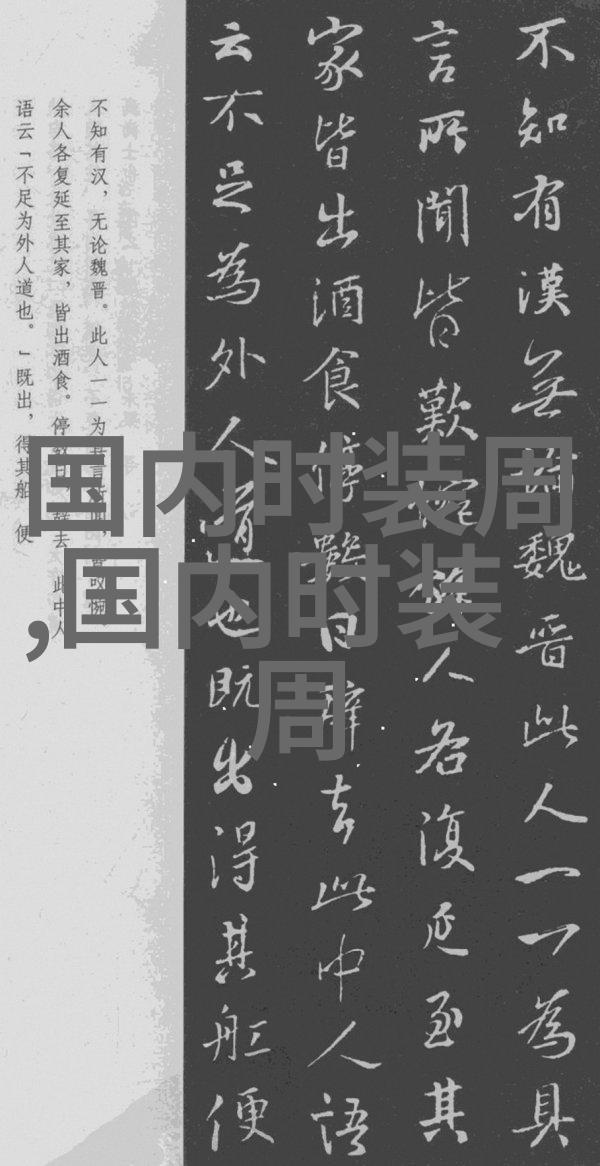 不知有漢無論魏晋此人一一為具
言所聞皆歎惋餘人各復延至其
家皆出酒食停數日辭去此中人語
云不足為外人道也既出得其舩便
不知有汉，无论魏晋。此人一一为具言所闻，皆叹惋。
余人各复延至其家，皆出酒食。停数日，辞去。此中人
语云「不足为外人道也。」既出，得其船，便
国内时装周
,国内时装
周